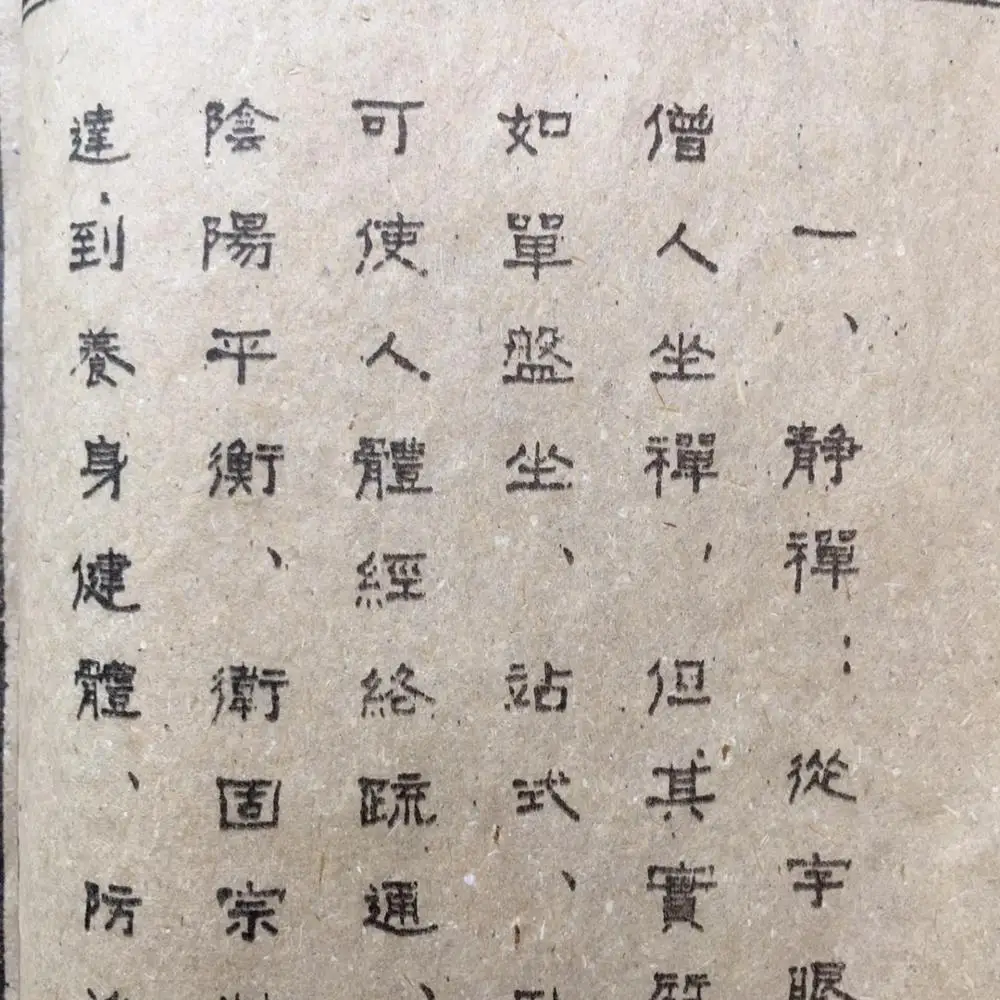 一、静禪：從字眼
僧人坐禪，但其實質
如單盤坐、站式、
可使人體經絡疏通、
陰陽平衡、衛固宗
達到養身健體、防